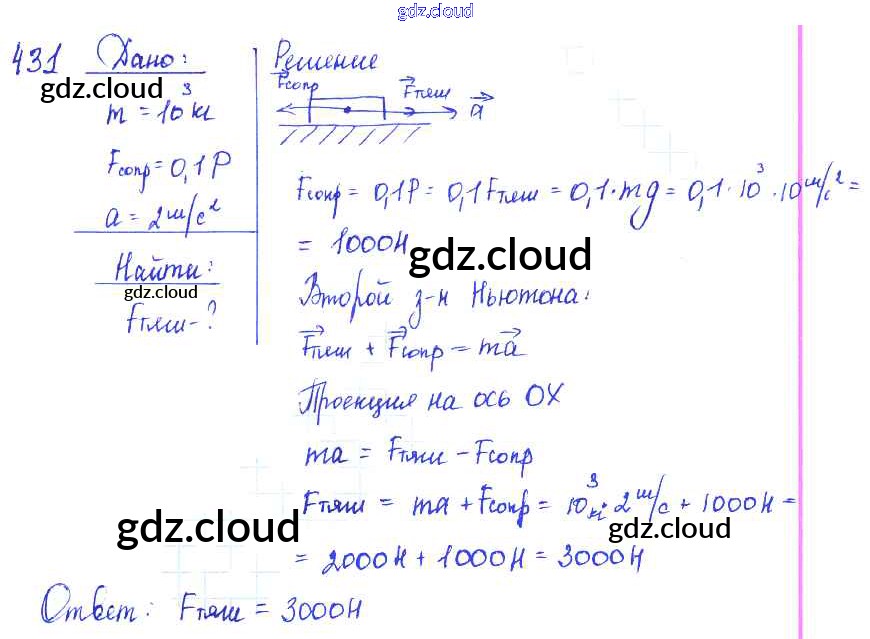 gdz.cloud
431 Дано:
gdz.cloud
m = 10³ кг
Fсопр = 0,1P
a = 2 м/с²
Найти:
gdz.cloud
Fтяги - ?
Решение
Fсопр Fтяги a
Fсопр = 0,1P = 0,1Fтяж = 0,1·mg = 0,1·10³·10 м/с² =
= 1000Н
gdz.cloud
Второй з-н Ньютона:
Fтяги + Fсопр = ma
Проекция на ось OX
ma = Fтяги - Fсопр
Fтяги = ma + Fсопр = 10³ кг·2 м/с + 1000Н =
gdz.cloud gdz.cloud
= 2000Н + 1000Н = 3000Н
Ответ: Fтяги = 3000Н